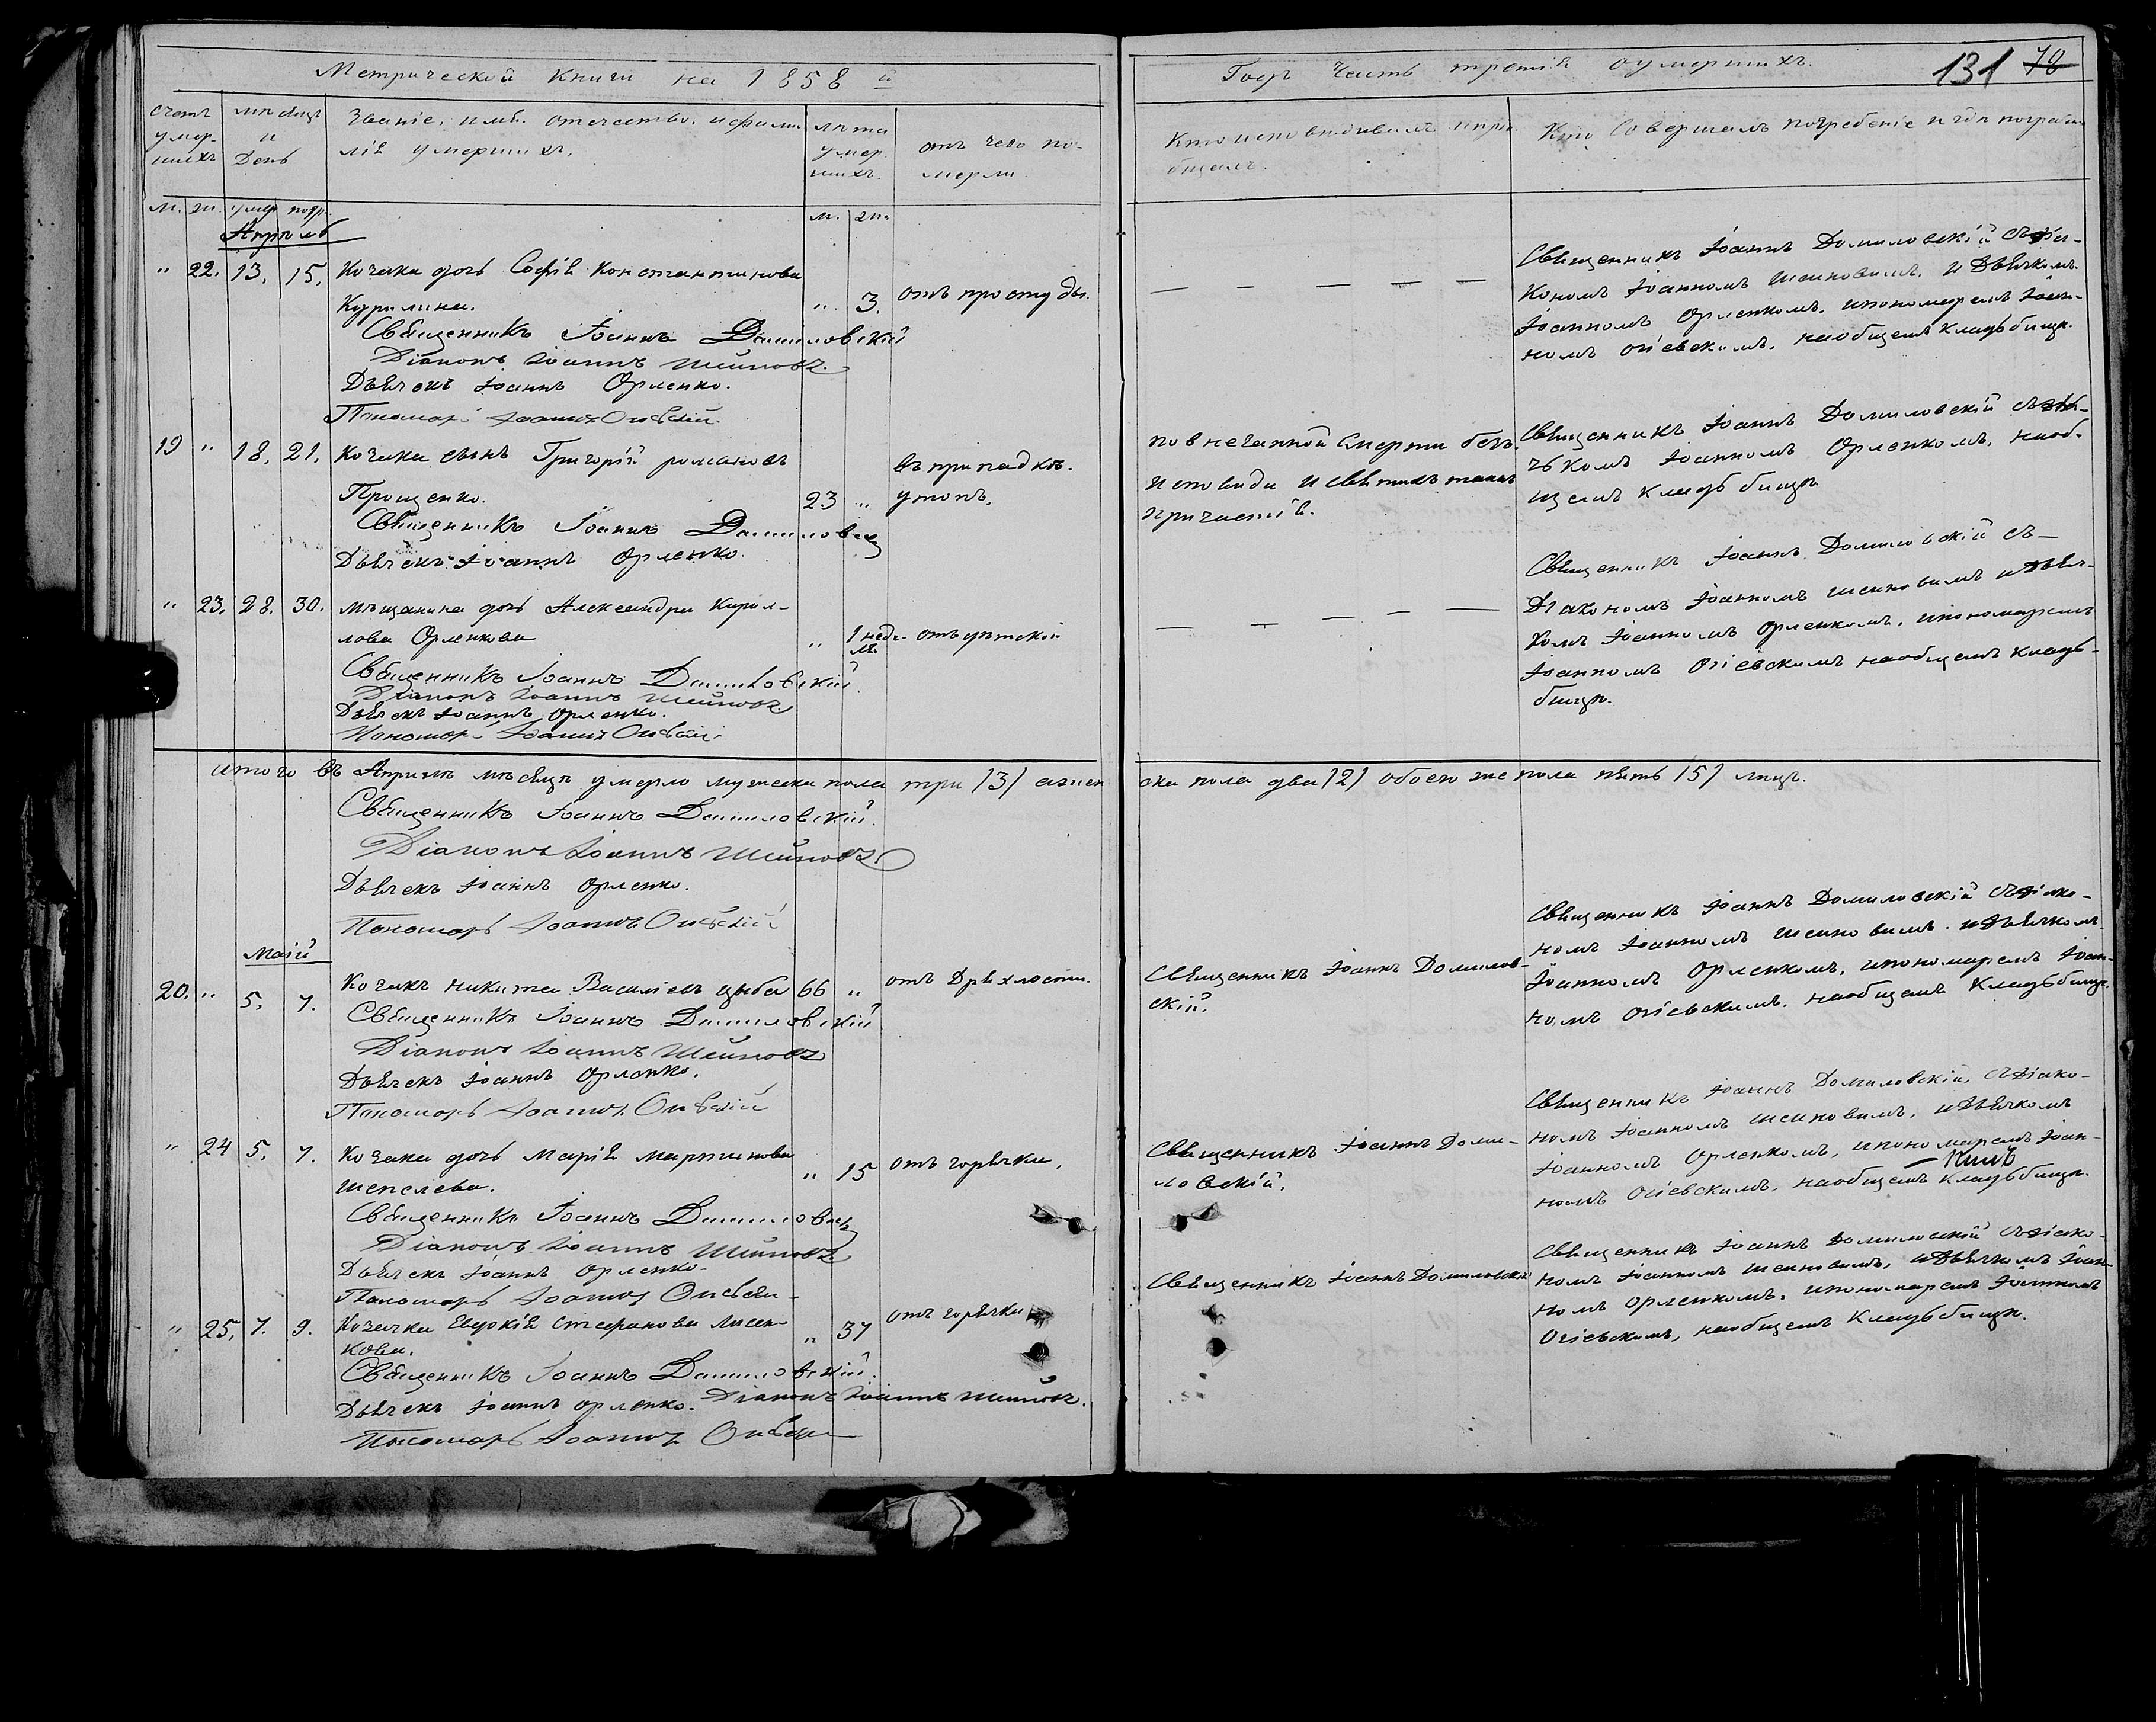 Метрической Книги на 1858 й
Годъ Часть третія оумершихъ.
131 78
Счетъ умер-шихъ
мѣсяцъ и День
Званіе, имя, отечество, ифами-
лія умершихъ.
лѣта умер-шихъ
отъ чего по-
мерли.
Кто исповѣдывалъ ипрі-
общалъ.
Кто Совершалъ погребеніе и гдѣ погребены
м. ж. умер. погр. м. ж.
Апрѣль
" 22. 13. 15. Козака дочь Софія Константинова
Курилина. " 3. отъ простуды.
Священникъ Іоаннъ Домиловскій
Діаконъ Іоаннъ Шеиновъ.
Дьячекъ Іоаннъ Орленко.
Пономарь Іоаннъ Огіевскій
— — — — —
Священникъ Іоаннъ Домиловскій съдіа-
кономъ Іоанномъ шеиновымъ, и Дьячкомъ
Іоанномъ Орленкомъ, ипономаремъ Іоан-
номъ Огіевскимъ, наобщемъ кладьбищѣ.
19 " 18. 21. Козака сынъ Григорій романовъ
Прощенко. 23 "
въ припадкѣ
утопъ.
Священникъ Іоаннъ Домиловскій
Дьячекъ Іоаннъ Орленко.
повнечапной Смерти безъ
исповиди исвятыхъ таинъ
причастія.
Священникъ Іоаннъ Домиловскій съдья-
чькомъ Іоанномъ Орленкомъ, наоб-
щемъ кладьбищѣ
" 23. 28. 30. мѣщанина дочь Александра Кирил-
лова Орленкова " 1 неде-ля отъ дѣтской
Священникъ Іоаннъ Домиловскій.
Діаконъ Іоаннъ Шеиновъ
Дьячекъ Іоаннъ Орленко.
Пономарь Іоаннъ Огіевскій
— — — — —
Священникъ Іоаннъ Домиловскій съ—
Діакономъ Іоанномъ шеиновымъ идьяч-
комъ Іоанномъ Орленкомъ, ипономаремъ
Іоанномъ Огіевскимъ наобщемъ кладь-
бищѣ.
итого въ Апрѣлѣ мѣсяцѣ умерло мужеска пола три /3/ ажен
ска пола два /2/ обоего же пола пять /5/ лицъ.
Священникъ Іоаннъ Домиловскій.
Діаконъ Іоаннъ Шеиновъ
Дьячекъ Іоаннъ Орленко.
Пономарь Іоаннъ Огіевскій
Маій
20. " 5. 7. Козакъ никита Василіевъ цыба 66 " отъ Дряхлости.
Священникъ Іоаннъ Домиловскій
Діаконъ Іоаннъ Шеиновъ
Дьячекъ Іоаннъ Орленко.
Пономарь Іоаннъ Огіевскій
Священникъ Іоаннъ Домилов-
скій.
Священникъ Іоаннъ Домиловскій съдіако-
номъ Іоанномъ шеиновымъ. идьячкомъ
Іоанномъ Орленкомъ, ипономаремъ Іоан-
номъ Огіевскимъ. наобщемъ Кладьбищѣ.
" 24 5. 7. Козака дочь Марія мартинова
шепелева. " 15 отъ горячки.
Священникъ Іоаннъ Домиловскій
Діаконъ Іоаннъ Шеиновъ
Дьячекъ Іоаннъ Орленко-
Пономарь Іоаннъ Огіевскій
Священникъ Іоаннъ Доми-
ловскій.
Священникъ Іоаннъ Домиловскій, съдіако-
номъ Іоанномъ шеиновымъ, идьячкомъ
Іоанномъ Орленкомъ, ипономаремъ Іоан-
номъ Огіевскимъ, наобщемъ кладьбищѣ.
" 25. 7. 9. Козачка Евдокія Стефанова лисен-
кова. " 37 отъ горячки
Священникъ Іоаннъ Домиловскій.
Дьячекъ Іоаннъ Орленко. Діаконъ Іоаннъ Шеиновъ.
Пономарь Іоаннъ Огіевскій
Священникъ Іоаннъ Домиловскій
Священникъ Іоаннъ Домиловскій съдіако-
номъ Іоанномъ шеиновымъ, идьячкомъ Іоан-
номъ Орленкомъ. ипономаремъ Іоанномъ
Огіевскимъ, наобщемъ Кладьбищѣ.